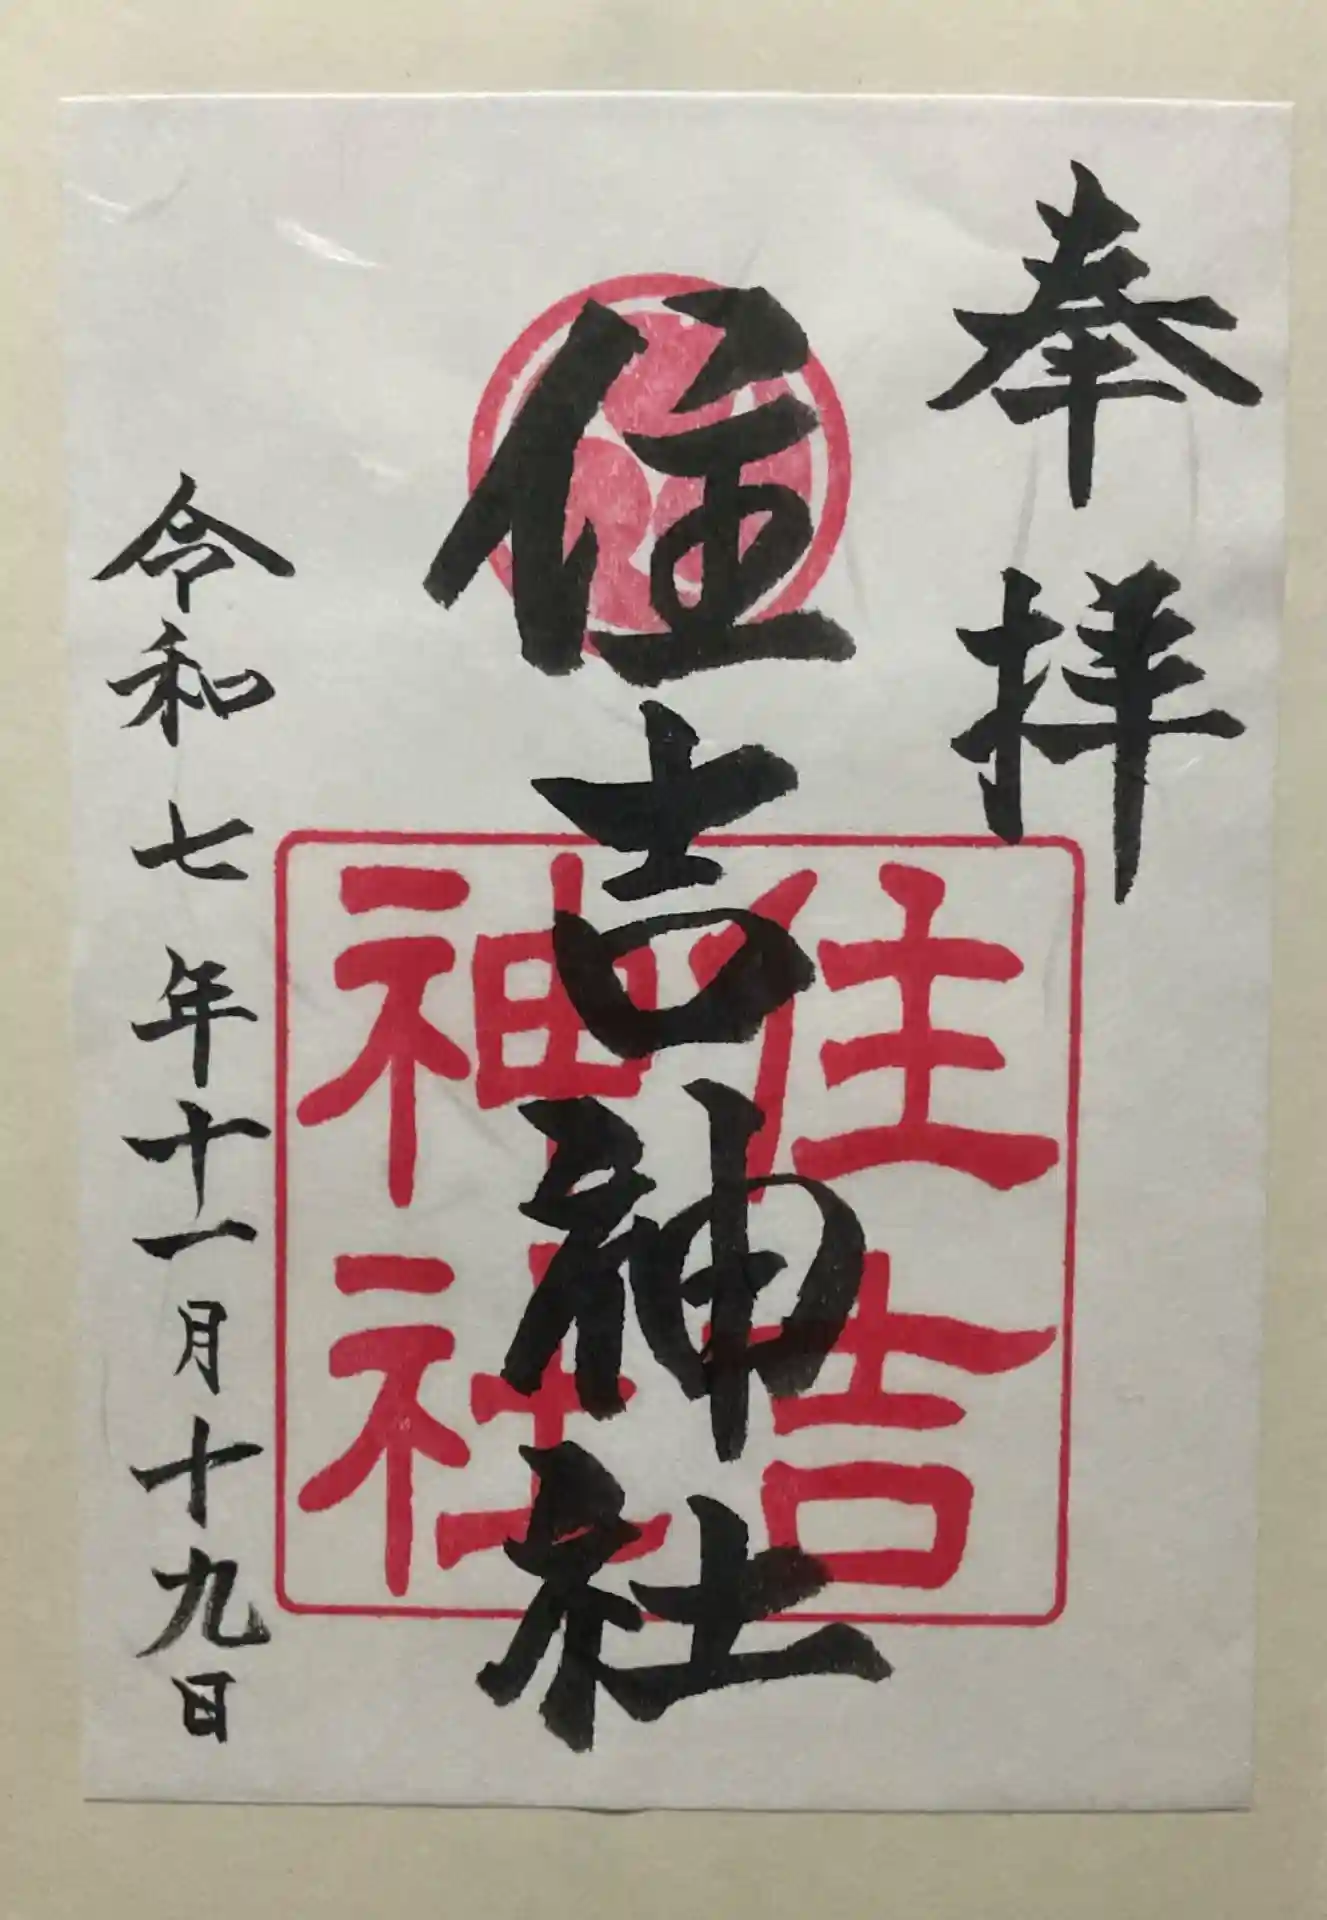 奉拝
住吉神社
住吉
神社
令和七年十一月十九日